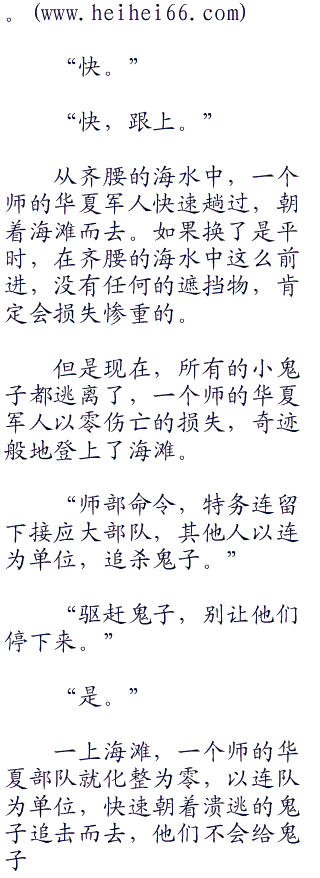 。(www.heihei66.com)
“快。”
“快，跟上。”
从齐腰的海水中，一个
师的华夏军人快速趟过，朝
着海滩而去。如果换了是平
时，在齐腰的海水中这么前
进，没有任何的遮挡物，肯
定会损失惨重的。
但是现在，所有的小鬼
子都逃离了，一个师的华夏
军人以零伤亡的损失，奇迹
般地登上了海滩。
“师部命令，特务连留
下接应大部队，其他人以连
为单位，追杀鬼子。”
“驱赶鬼子，别让他们
停下来。”
“是。”
一上海滩，一个师的华
夏部队就化整为零，以连队
为单位，快速朝着溃逃的鬼
子追击而去，他们不会给鬼
子